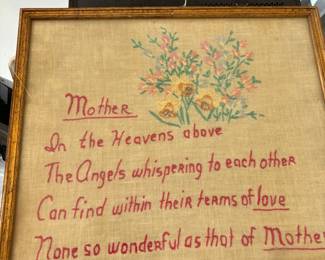 Mother
In the Heavens above
The Angels whispering to each other
Can find within their terms of love
None so wonderful as that of Mother